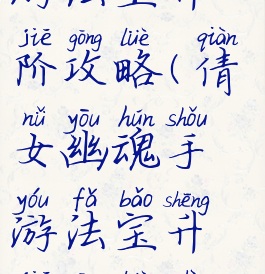 jiē gōng lüè qiàn
阶攻略(倩
nǚ yōu hún shǒu
女幽魂手
yóu fǎ bǎo shēng
游法宝升